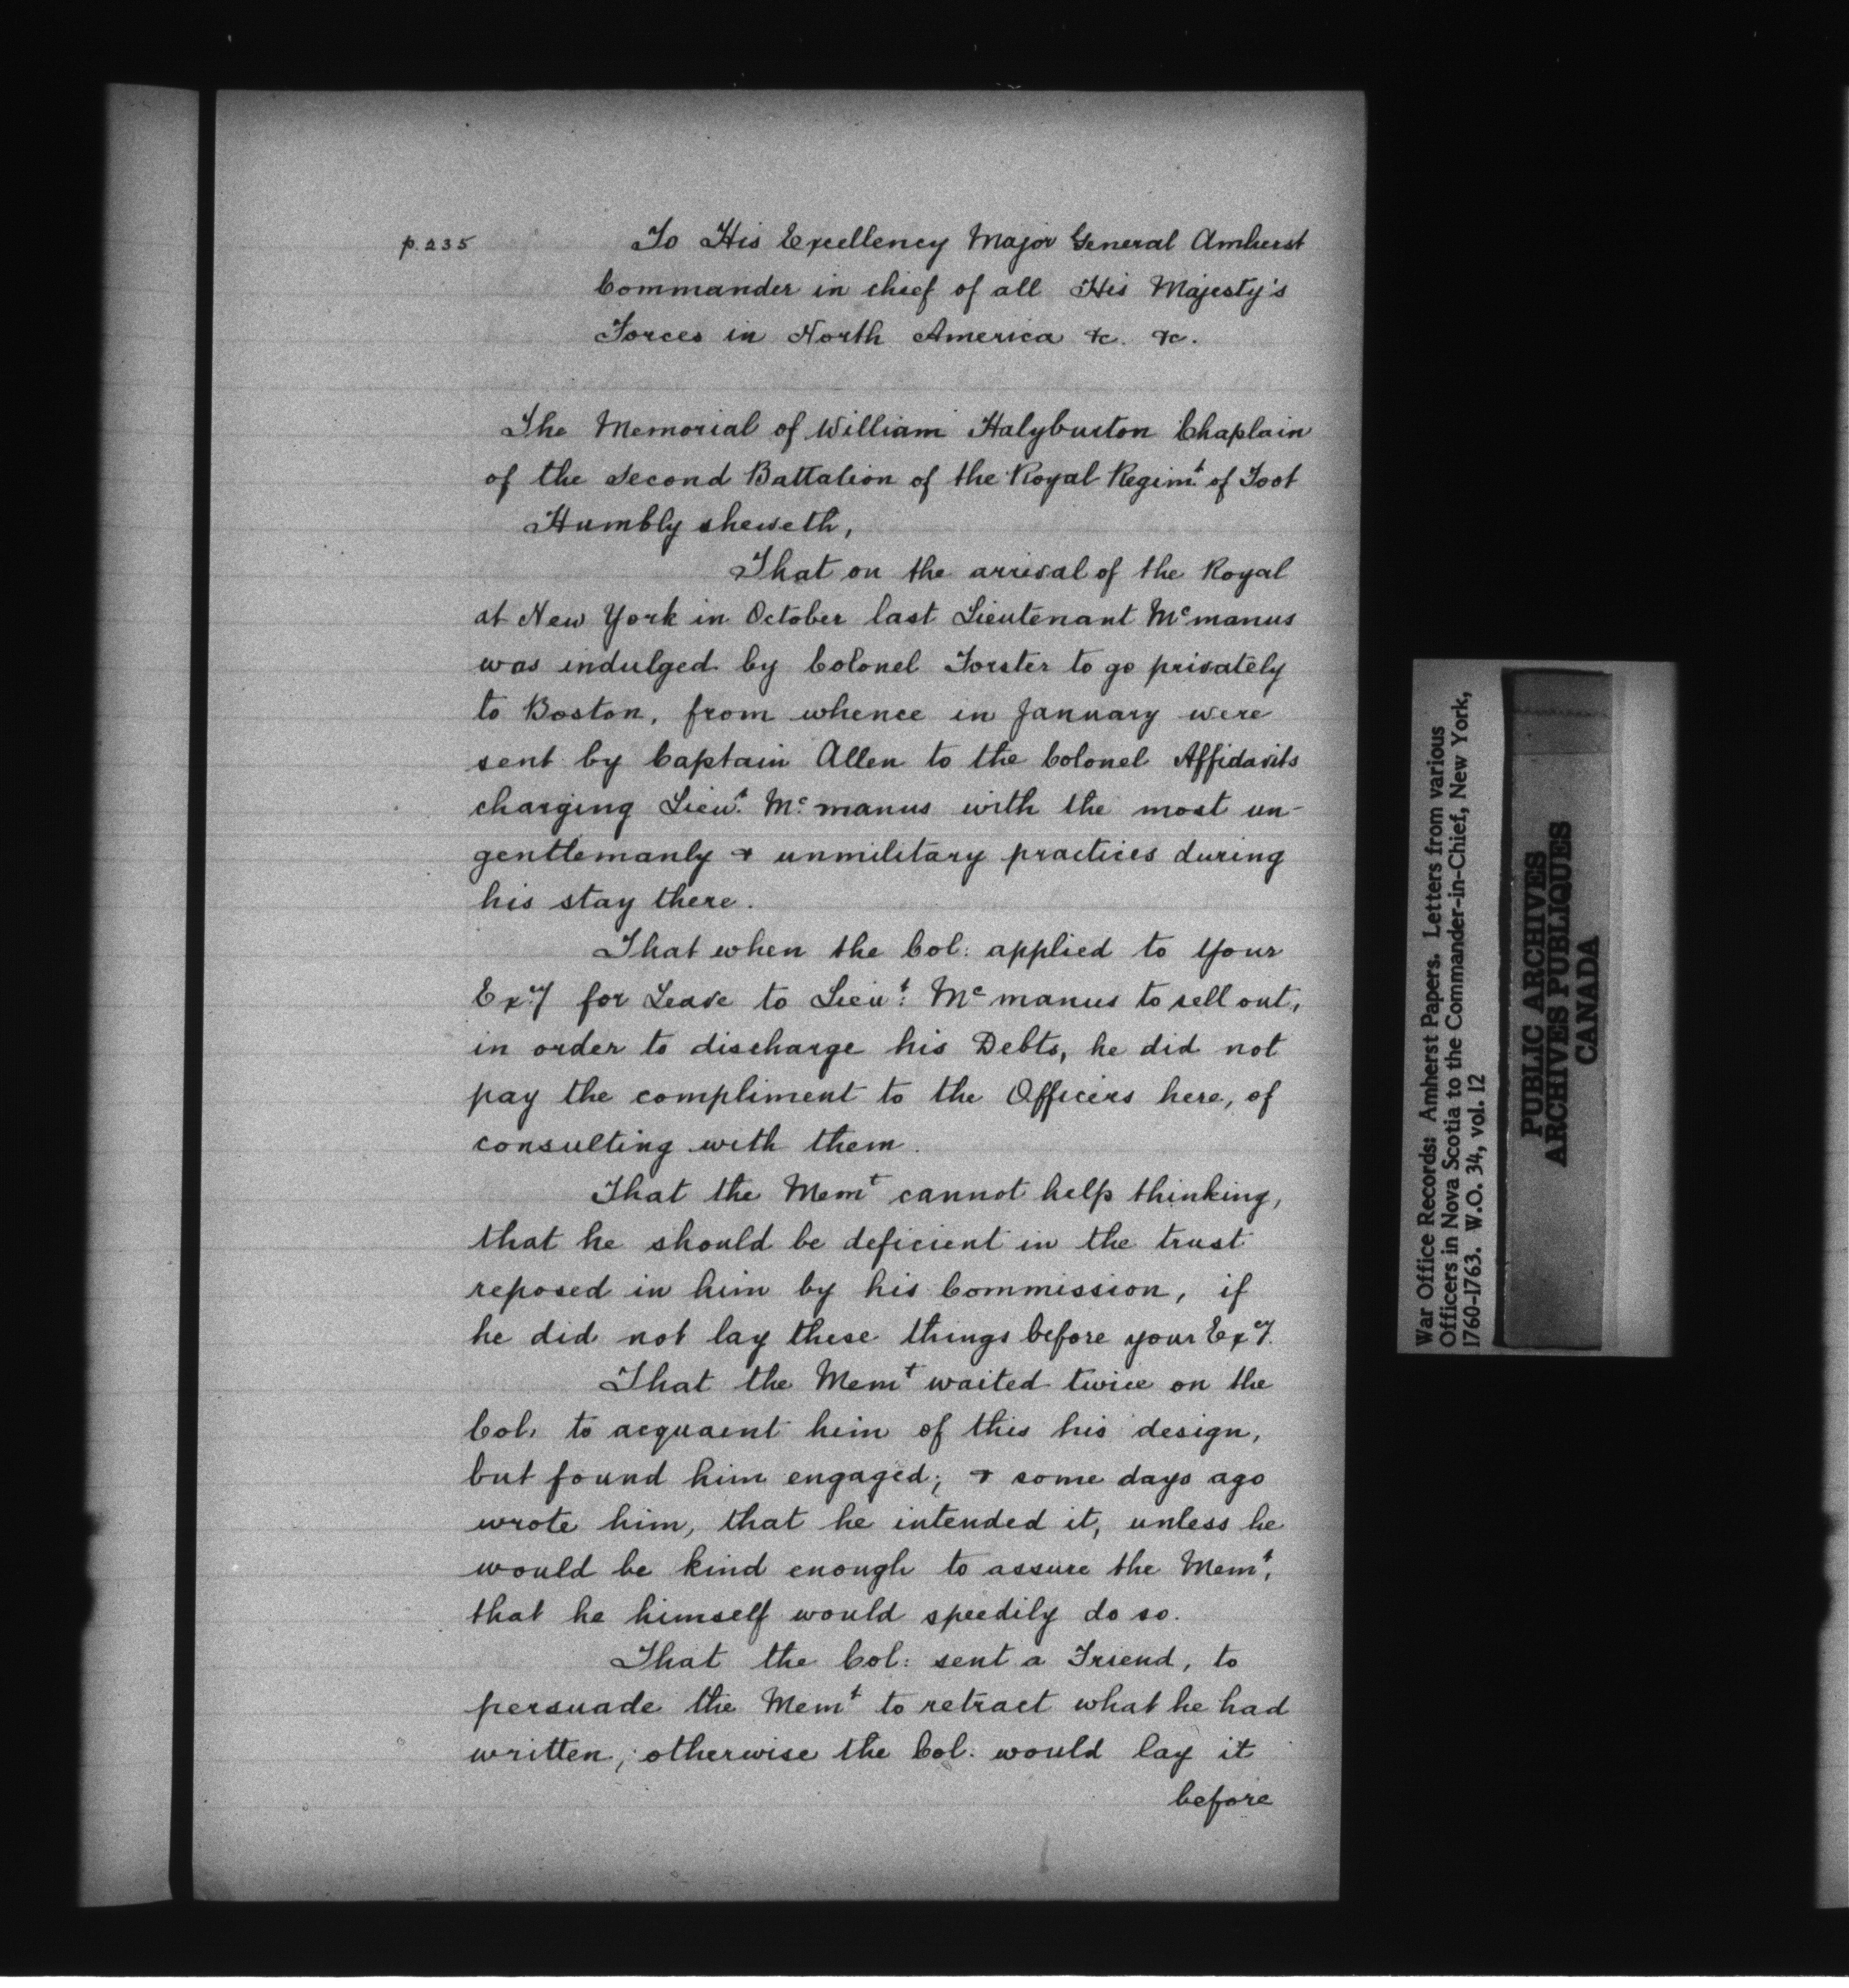 p. 235
To His Excellency Major General Amherst
Commander in chief of all His Majesty's
Forces in North America &c. &c.
The Memorial of William Halyburton Chaplain
of the Second Battalion of the Royal Regimt. of Foot
Humbly sheweth,
That on the arrival of the Royal
at New York in October last Lieutenant Mcmanus
was indulged by Colonel Forster to go privately
to Boston, from whence in January were
sent by Captain Allen to the Colonel Affidavits
charging Lieut. Mc.manus with the most un-
gentlemanly & unmilitary practices during
his stay there.
That when the Col: applied to Your
Exy for Leave to Lieut: Mcmanus to sell out,
in order to discharge his Debts, he did not
pay the compliment to the Officers here, of
consulting with them.
That the Memt cannot help thinking,
that he should be deficient in the trust
reposed in him by his Commission, if
he did not lay these things before your Exy.
That the Memt waited twice on the
Col: to acquaint him of this his design,
but found him engaged; & some days ago
wrote him, that he intended it, unless he
would be kind enough to assure the Memt,
that he himself would speedily do so.
That the Col: sent a Friend, to
persuade the Memt to retract what he had
written; otherwise the Col: would lay it
before
War Office Records: Amherst Papers. Letters from various
Officers in Nova Scotia to the Commander-in-Chief, New York,
1760-1763. W.O. 34, vol. 12
PUBLIC ARCHIVES
ARCHIVES PUBLIQUES
CANADA